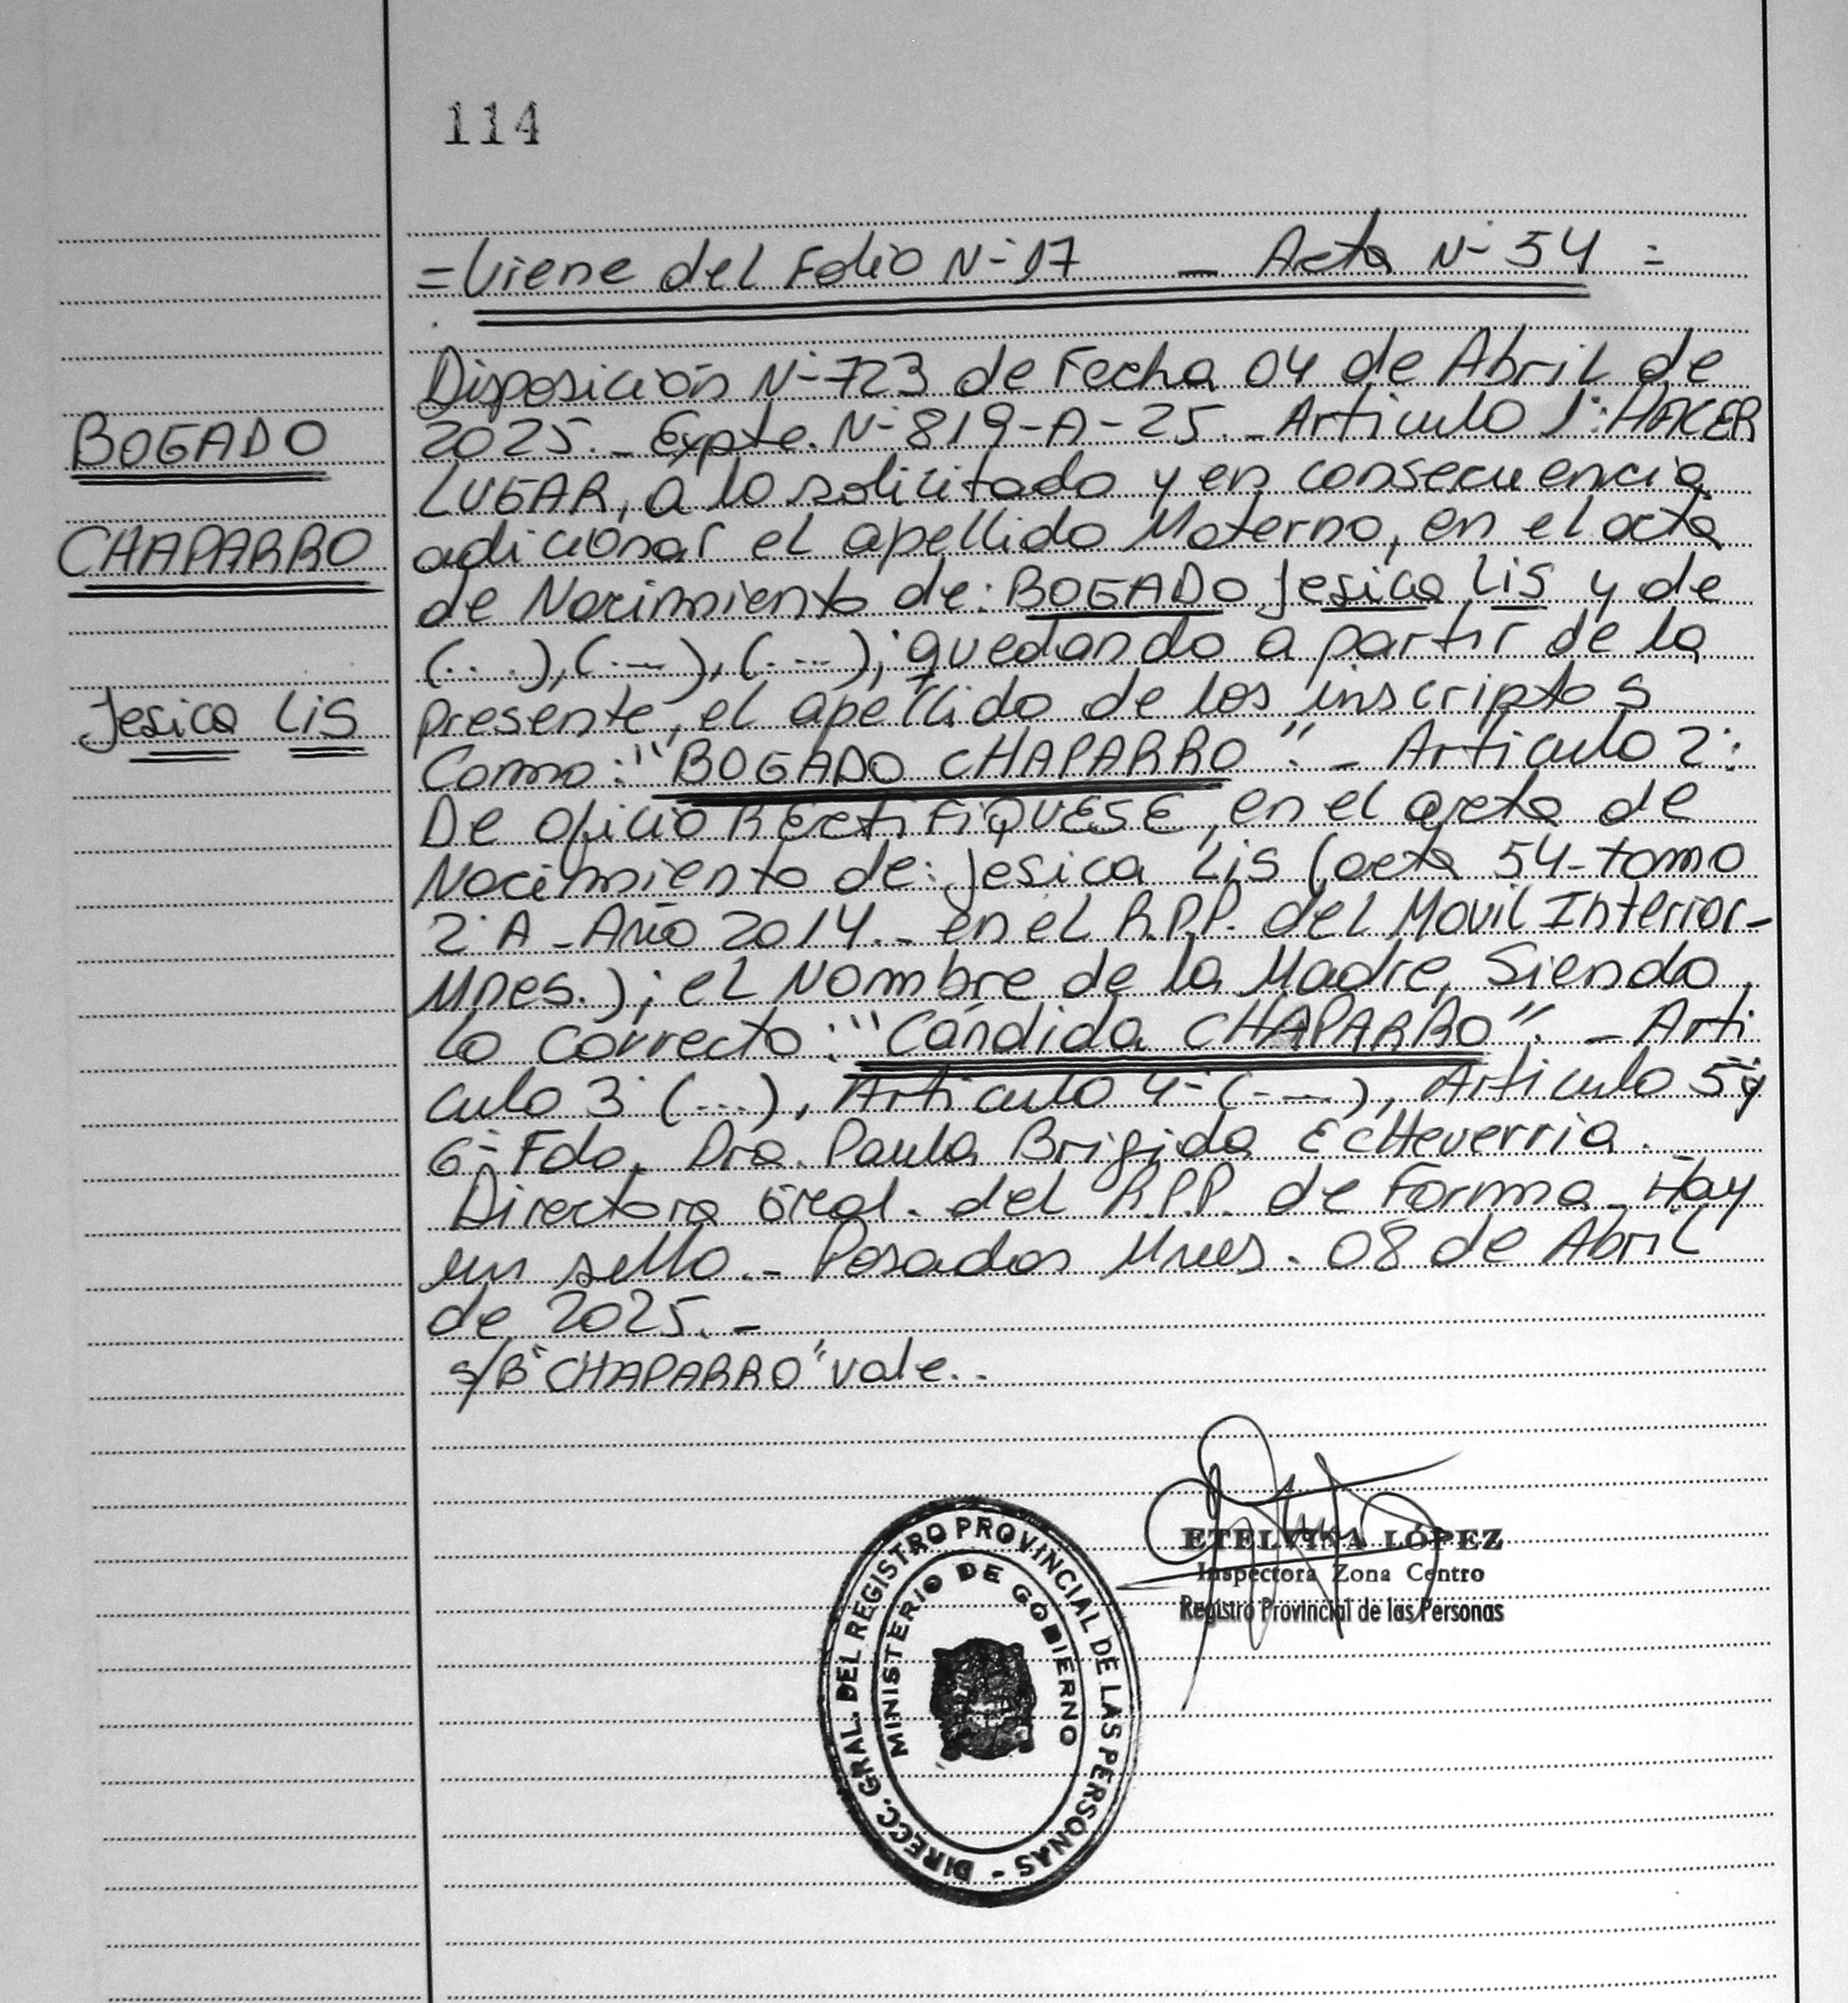 114
= Viene del Folio N- 17 - Acta N- 54 =
Disposición N- 723 de Fecha 04 de Abril de
2025.- Expte. N- 819-A-25.- Articulo 1: HACER
LUGAR, a lo solicitado y en consecuencia
adicionar el apellido Materno, en el acta
de Nacimiento de: BOGADO Jesica Lis y de
(...), (...), (...); quedando a partir de la
presente, el apellido de los inscriptos
Como: "BOGADO CHAPARRO".- Articulo 2:
De oficio RECTIFIQUESE, en el acta de
Nacimiento de: Jesica Lis (acta 54-tomo
2° A - Año 2014.- en el R.P.P. del Movil Interior-
Mnes.); el Nombre de la Madre, Siendo
lo correcto: "Cándida CHAPARRO".- Arti
culo 3° (...), Articulo 4- (...), Articulo 5 y
6- Fdo. Dra. Paula Brigida Echeverria.
Directora Gral. del R.P.P. de Forma - Hay
un sello.- Posadas Mnes. 08 de Abril
de 2025.-
s/B "CHAPARRO" vale..
BOGADO
CHAPARRO
Jesica Lis
ETELVINA LÓPEZ
Inspectora Zona Centro
Registro Provincial de las Personas
DIRECC. GRAL. DEL REGISTRO PROVINCIAL DE LAS PERSONAS -
MINISTERIO DE GOBIERNO